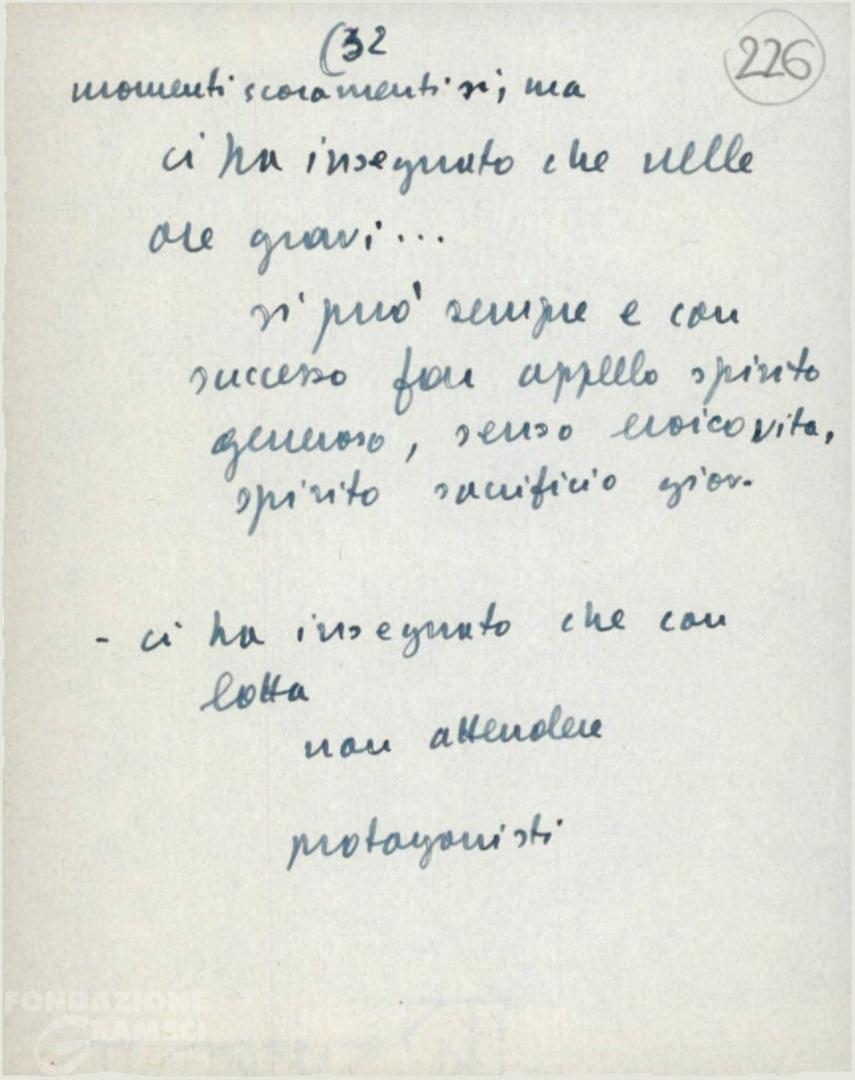 (32
226
momenti scoramenti sì, ma
ci ha insegnato che nelle
ore gravi...
si può sempre e con
successo fare appello spirito
generoso, senso eroico vita,
spirito sacrificio giov.
- ci ha insegnato che con
lotta
non attendere
protagonisti
FONDAZIONE
GRAMSCI